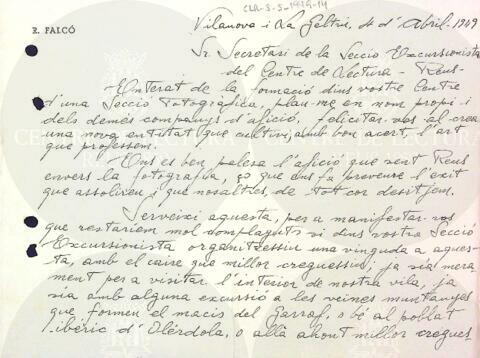 CLR-S-S-1929-14
E. FALCÓ
Vilanova i La Geltrú, 4 d'Abril-1929
Sr Secretari de la Secció Excursionista
del Centre de Lectura - Reus-
Enterat de la formació dins vostre Centre
d'una Secció Fotografica, plau-me en nom propi i
dels demés companys d'afició, felicitar-vos al crear
una nova entitat que cultivi amb bon acert, l'art
que professem.
Ens es ben palesa l'afició que sent Reus
envers la fotografia, ço que ens fa preveure l'exit
que assolireu i que nosaltres de tot cor desitjem.
Serveixi aquesta, per a manifestar-vos
que restariem mol complaguts si dins vostra Secció
Excursionista organitzessiu una vinguda a aques-
ta, amb el caire que millor creguessiu; ja sia mera
ment per a visitar l'interior de nostra vila, ja
sia amb alguna excursió a les veines muntanyes
que formen el macis del Garraf, o bé al poblat
ibéric d'Olérdola, o allà ahont millor cregues-